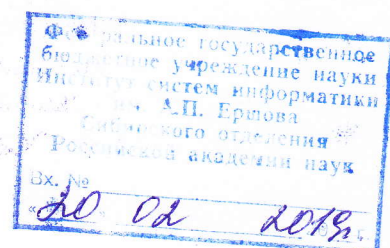 Федеральное государственное
бюджетное учреждение науки
Институт систем информатики
им. А.П. Ершова
Сибирского отделения
Российской академии наук
Вх. №
« 20 » 02 2019 г.